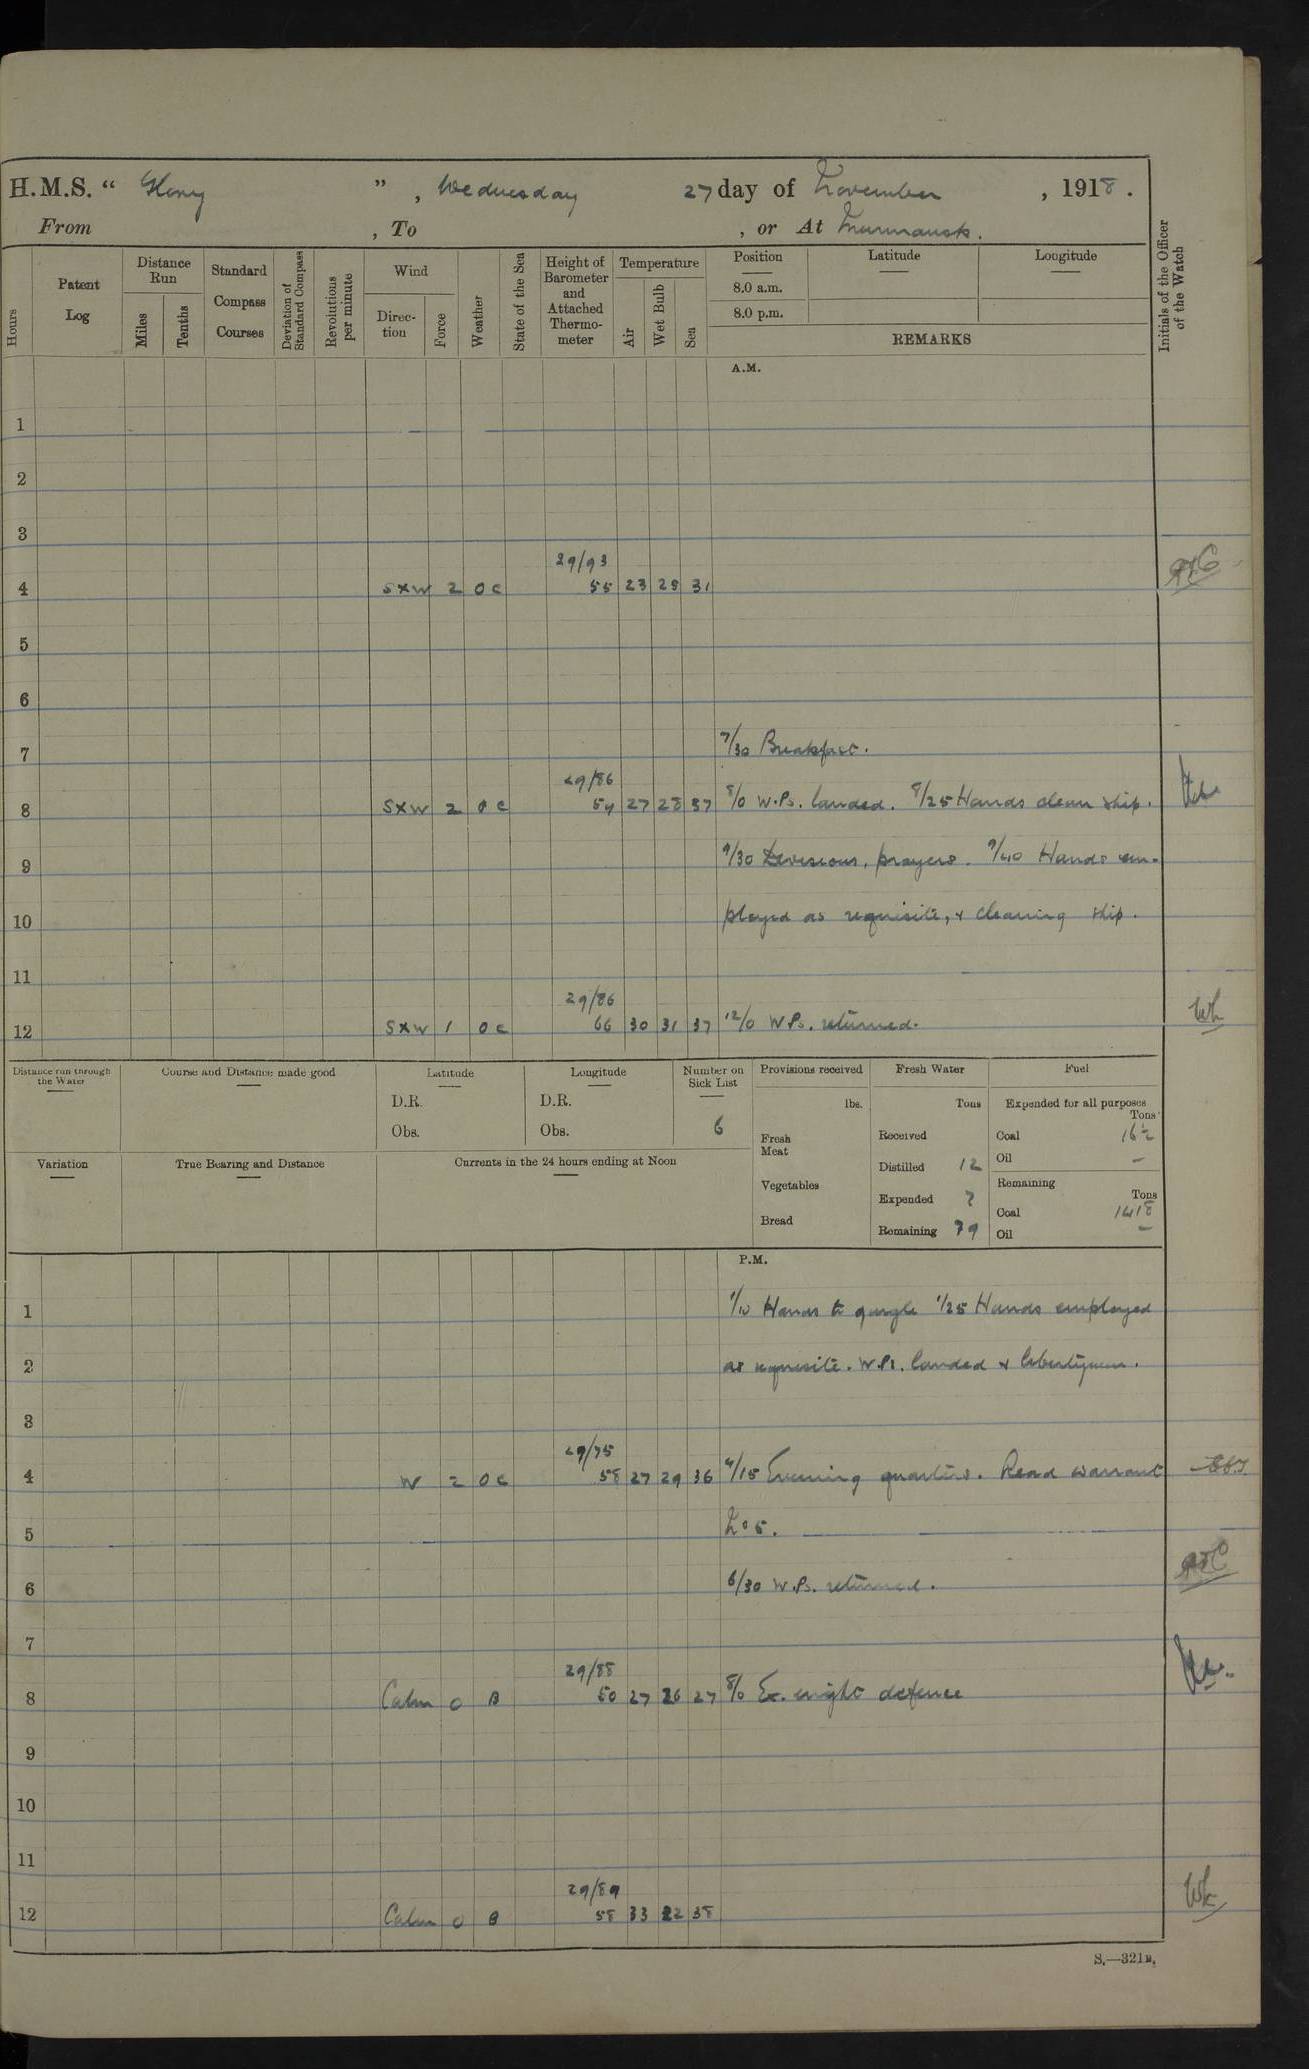 H.M.S. “ Glory ” , Wednesday 27 day of November , 1918 .
From , To , or At Murmansk.
Hours
Patent Log
Distance Run
Miles
Tenths
Standard Compass Courses
Deviation of Standard Compass
Revolutions per minute
Wind
Direction
Force
Weather
State of the Sea
Height of Barometer and Attached Thermometer
Temperature
Air
Wet Bulb
Sea
Position
8.0 a.m.
8.0 p.m.
Latitude
Longitude
REMARKS
Initials of the Officer of the Watch
A.M.
1
2
3
29/93
4 SXW 2 OC 55 23 25 31
5
6
7 7/30 Breakfast.
29/86
8 SXW 2 OC 54 27 28 37 8/0 W.Ps. landed. 8/25 Hands clean ship.
9 9/30 Divisions, prayers. 9/40 Hands em-
10 ployed as requisite, & cleaning ship.
11
29/86
12 SXW 1 OC 66 30 31 37 12/0 W Ps. returned.
Distance run through the Water
Course and Distance made good
Latitude
D.R.
Obs.
Longitude
D.R.
Obs.
Number on Sick List
6
Provisions received
lbs.
Fresh Meat
Vegetables
Bread
Fresh Water
Tons
Received
Distilled 12
Expended
Remaining 79
Fuel
Expended for all purposes
Tons
Coal 16½
Oil –
Remaining
Tons
Coal 1418
Oil –
Variation
True Bearing and Distance
Currents in the 24 hours ending at Noon
P.M.
1 1/10 Hands to gargle 1/25 Hands employed
2 as requisite. W.Ps. landed & libertymen.
3
29/75
4 W 2 OC 58 27 29 36 4/15 Evening quarters. Read warrant
5 No 5.
6 6/30 W.Ps. returned.
7
29/88
8 Calm 0 B 50 27 26 27 8/0 Ex. night defence
9
10
11
29/89
12 Calm 0 B 58 33 22 38
S.—321B.